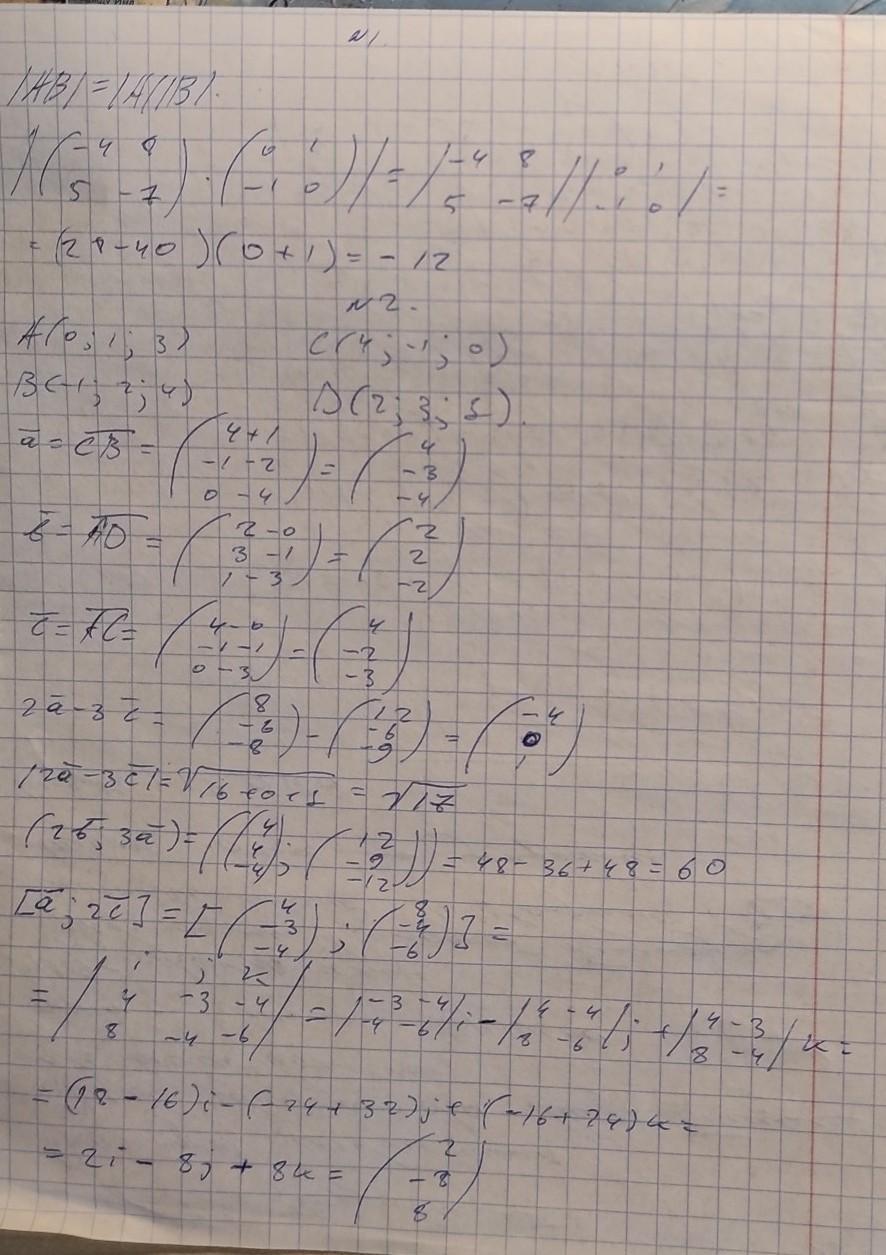 №1
|AB| = |A||B|.
|(-4 8; 5 -7) · (0 1; -1 0)| = |-4 8; 5 -7| |0 1; -1 0| =
= (28-40)(0+1) = -12
№2.
A(0; 1; 3) C(4; -1; 0)
B(-1; 2; 4) D(2; 3; 1).
a̅ = C̅B̅ = (4+1; -1-2; 0-4) = (4; -3; -4)
b̅ = A̅D̅ = (2-0; 3-1; 1-3) = (2; 2; -2)
c̅ = A̅C̅ = (4-0; -1-1; 0-3) = (4; -2; -3)
2a̅-3c̅ = (8; -6; -8) - (12; -6; -9) = (-4; 0; 1)
|2a̅-3c̅| = √16+0+1 = √17
(2b̅; 3a̅) = ((4; 4; -4); (12; -9; -12)) = 48-36+48 = 60
[a̅; 2c̅] = [(4; -3; -4); (8; -4; -6)] =
= |i j k; 4 -3 -4; 8 -4 -6| = |-3 -4; -4 -6| i - |4 -4; 8 -6| j + |4 -3; 8 -4| k =
= (18-16)i - (-24+32)j + (-16+24)k =
= 2i - 8j + 8k = (2; -8; 8)